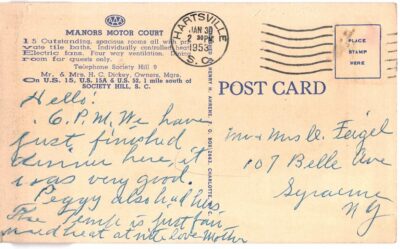 AAA
MANORS MOTOR COURT
15 Outstanding, spacious rooms all with pri-
vate tile baths. Individually controlled heat
Electric fans. Four way ventilation. Dining
room for guests only.
Telephone Society Hill 9
Mr. & Mrs. H. C. Dickey, Owners, Mgrs.
On U.S. 15, U.S. 15A & U.S. 52, 1 mile south of
SOCIETY HILL, S. C.
HARTSVILLE
JAN 30
2 30 PM
1953
S. C.
PLACE
STAMP
HERE
POST CARD
Hello!
6. P.M. We have
just finished
dinner here, it
was very good.
Peggy also had hers
The temp is just fair
need heat at nite Love Mother
Mr & Mrs A. Feigel
107 Belle Ave
Syracuse
NY